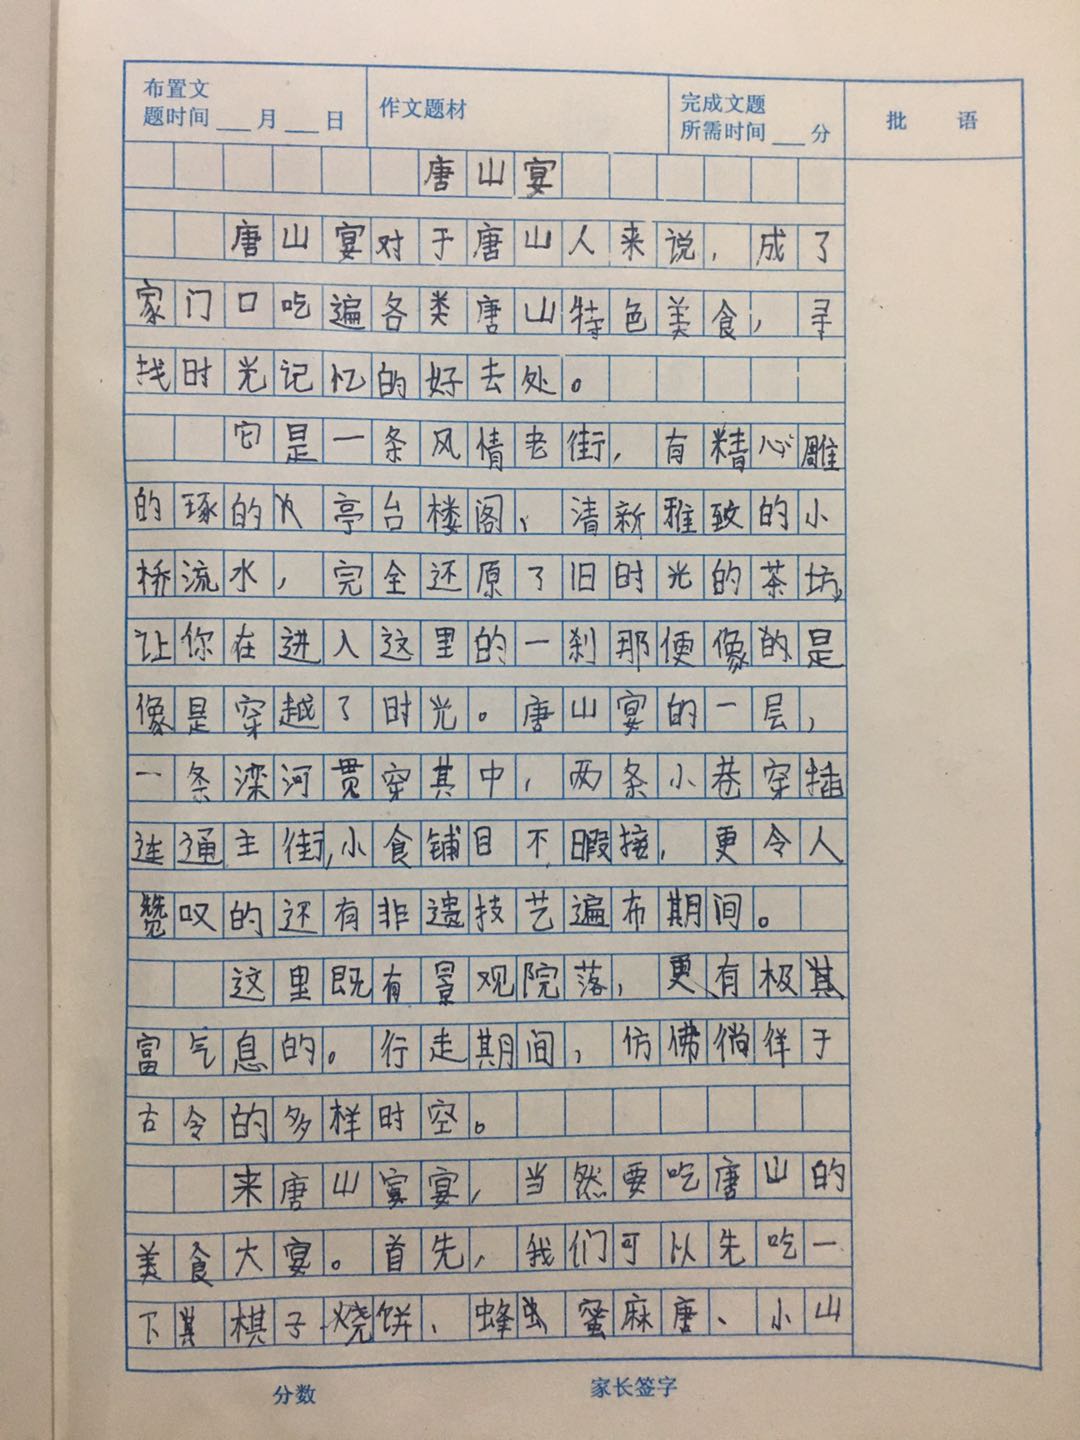 布置文
题时间 ___ 月 ___ 日
作文题材
完成文题
所需时间 ___ 分
批 语
唐山宴
唐山宴对于唐山人来说，成了
家门口吃遍各类唐山特色美食，寻
找时光记忆的好去处。
它是一条风情老街，有精心雕
的琢的亭台楼阁、清新雅致的小
桥流水，完全还原了旧时光的茶坊，
让你在进入这里的一刹那便像的是
像是穿越了时光。唐山宴的一层，
一条滦河贯穿其中，两条小巷穿插
连通主街，小食铺目不暇接，更令人
赞叹的还有非遗技艺遍布期间。
这里既有景观院落，更有极其
富气息的。行走期间，仿佛徜徉于
古今的多样时空。
来唐山宴宴，当然要吃唐山的
美食大宴。首先，我们可以先吃一
下其棋子烧饼、蜂虫蜜麻唐、小山
分数
家长签字